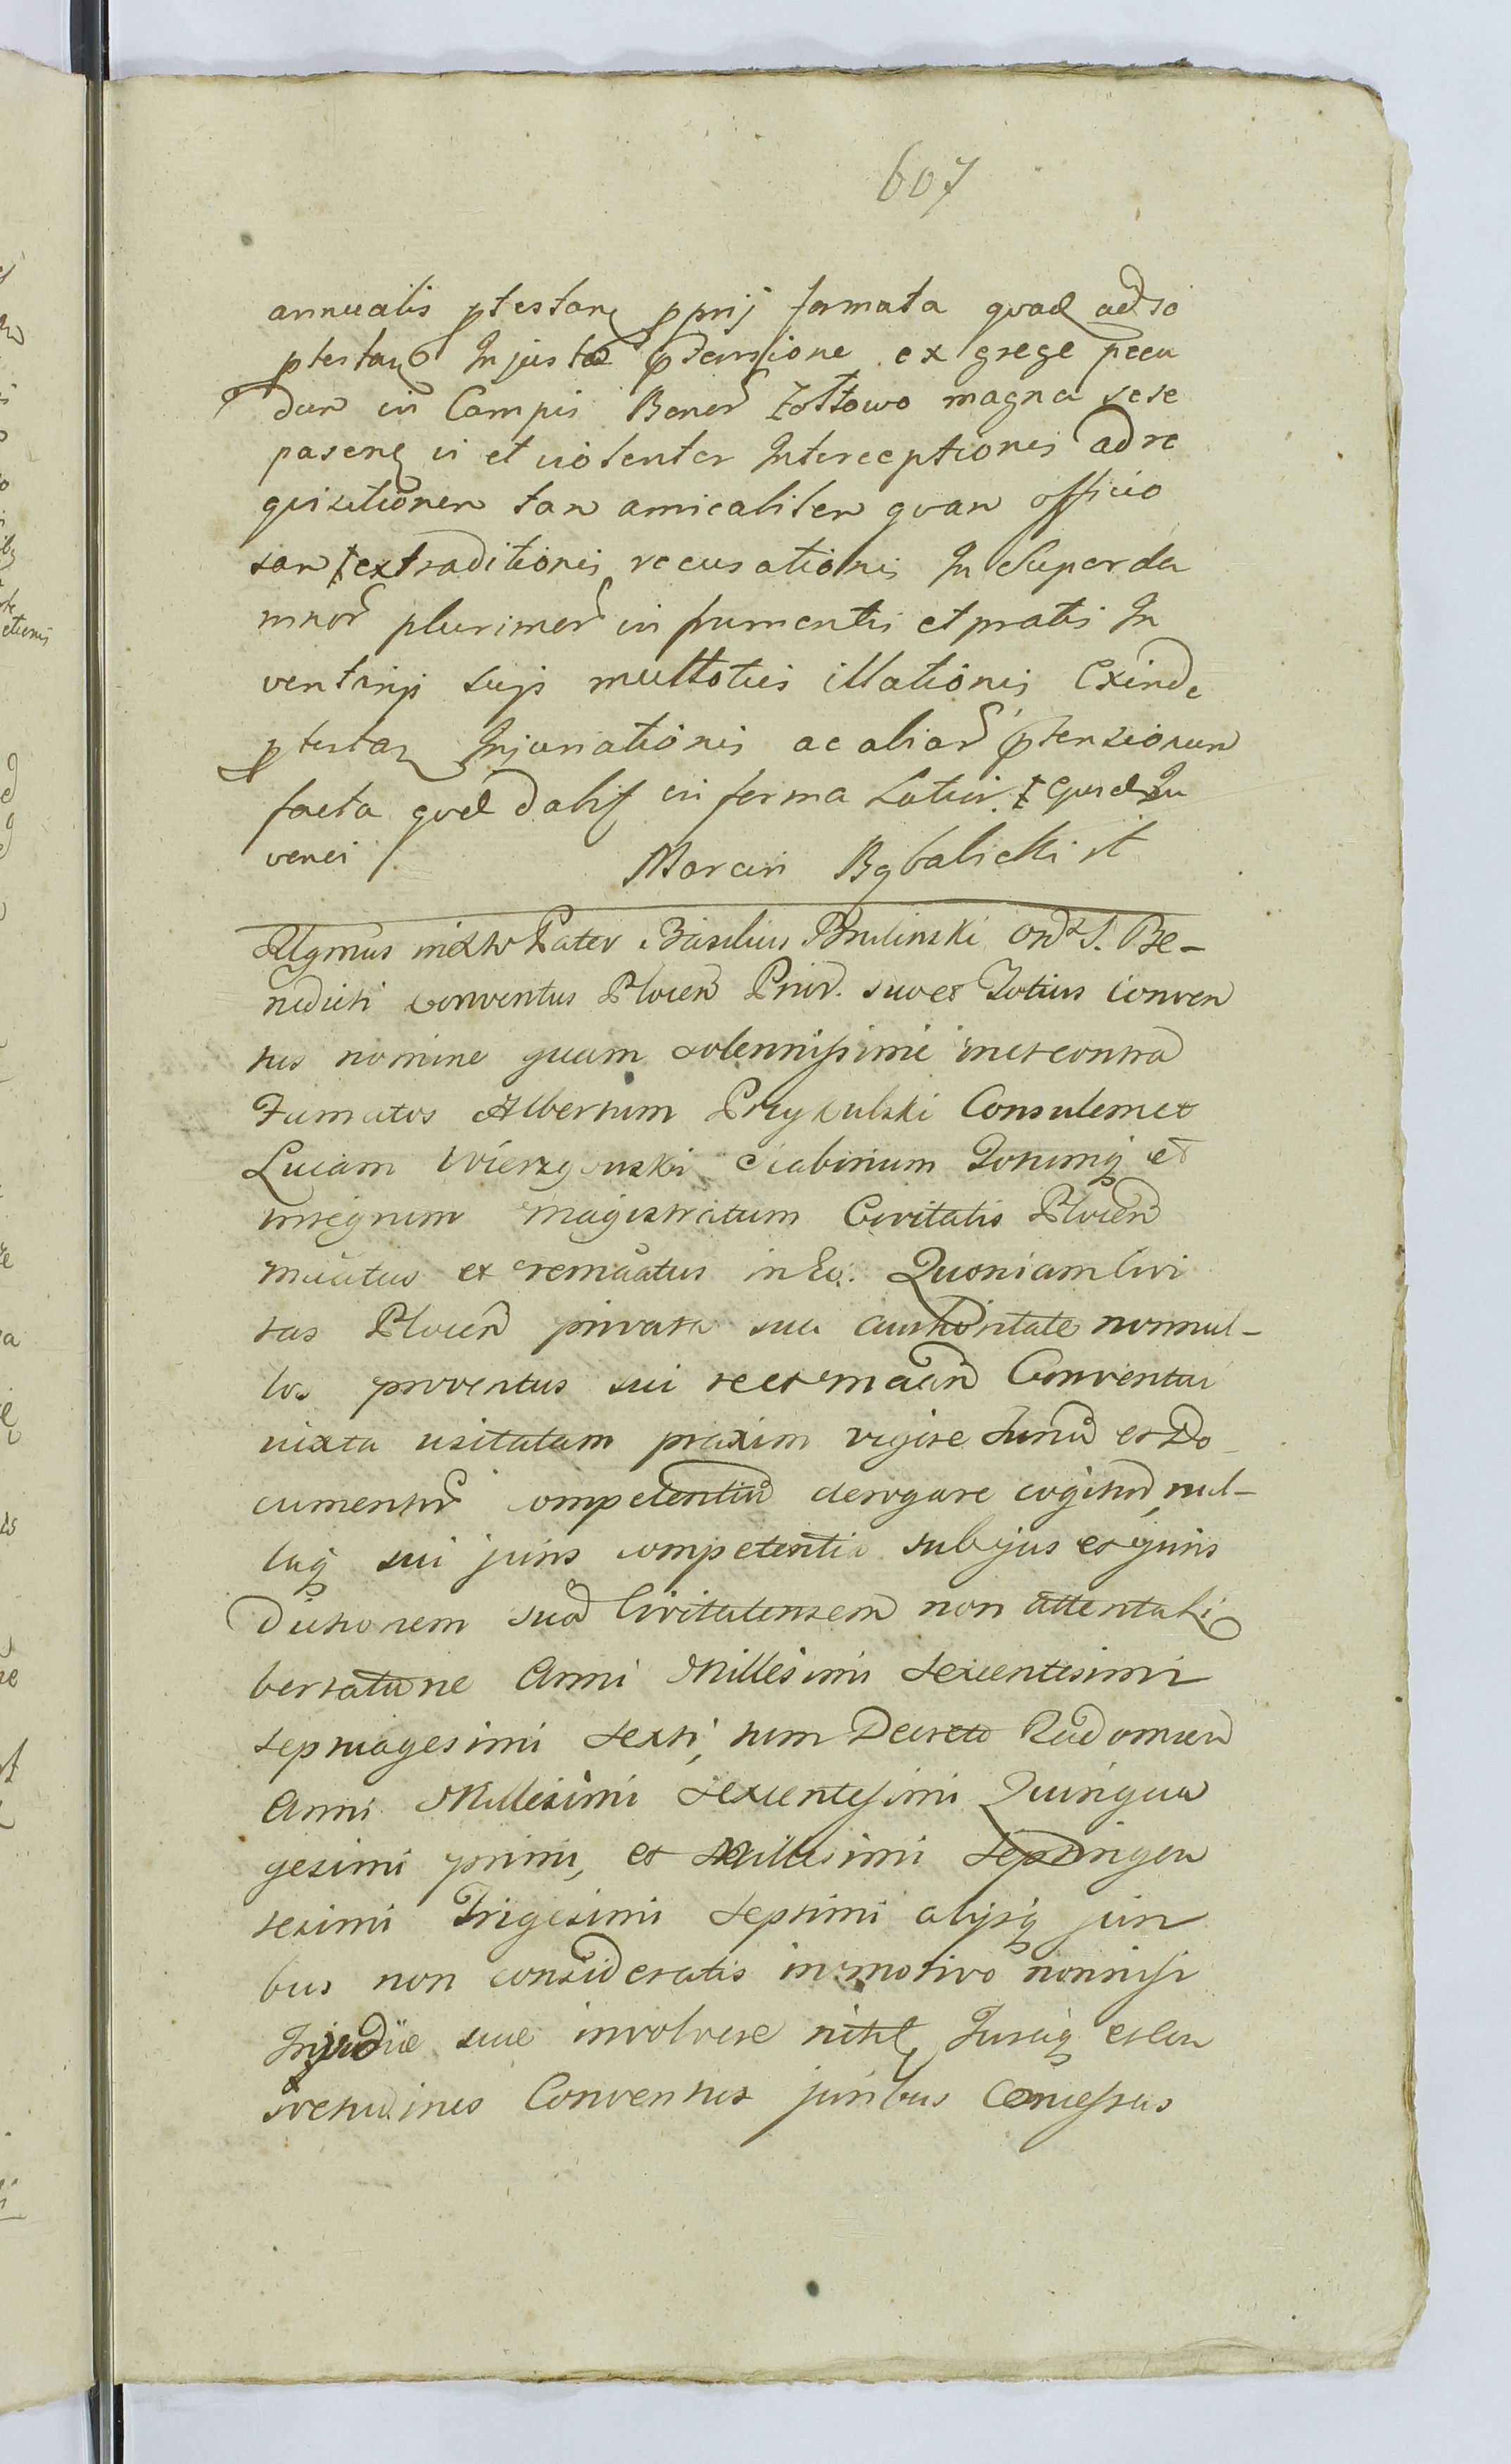 607
annualis ptestan pprij formata quad adso
ptestan Injusta ptensione ex grege pecu
dun in Campis Boner Zołtowo magna sese
pascen vi et violenter Interceptionis adre
quisitionem tan amicaliter quan officio
san extraditionis recusationis In Super da
mnor plurimor in frumentis et pratis In
ventarijs sujs multoties illationis Exinde
ptestan Injuriationis ac aliar ptensionum
facta qvd dabit in forma Latiori
venei Marcin Rybalicki
pater Basilius Brulinski Ord S. Be-
nedicti Conventus Plocen Prior. suo et Totius conven
tus nomine quam solennissime in et contra
Famatos Albertum Przykulski Consulem et
Lucam Wierzgowski Scabinum Totumq et
integrum Magistratum Civitatis Plocen
in Eo: Quoniam Civi
tas Plocen privata sua authoritate nonnul-
los proventus sui Conventui
iuxta usitatam praxim vigore Juriu et Do
cumentor competentiu derogare cogitand, nul-
laq sui juris competentia sub jus et juris
dictionem sua Civitatensem non attenta Li
bertatione Anni Millesimi Sexcentesimi
septuagesimi sexti, tum Decreto Radomien
Anni Millesimi Sexcentesimi Quinqua
gesimi primi, et Millesimi Septingen
tesimi Trigesimi Septimi alijsq juri
bus non consideratis in motivo nonnisi
suae involvere Jusq et Con
svetudines Conventus juribus Concessas